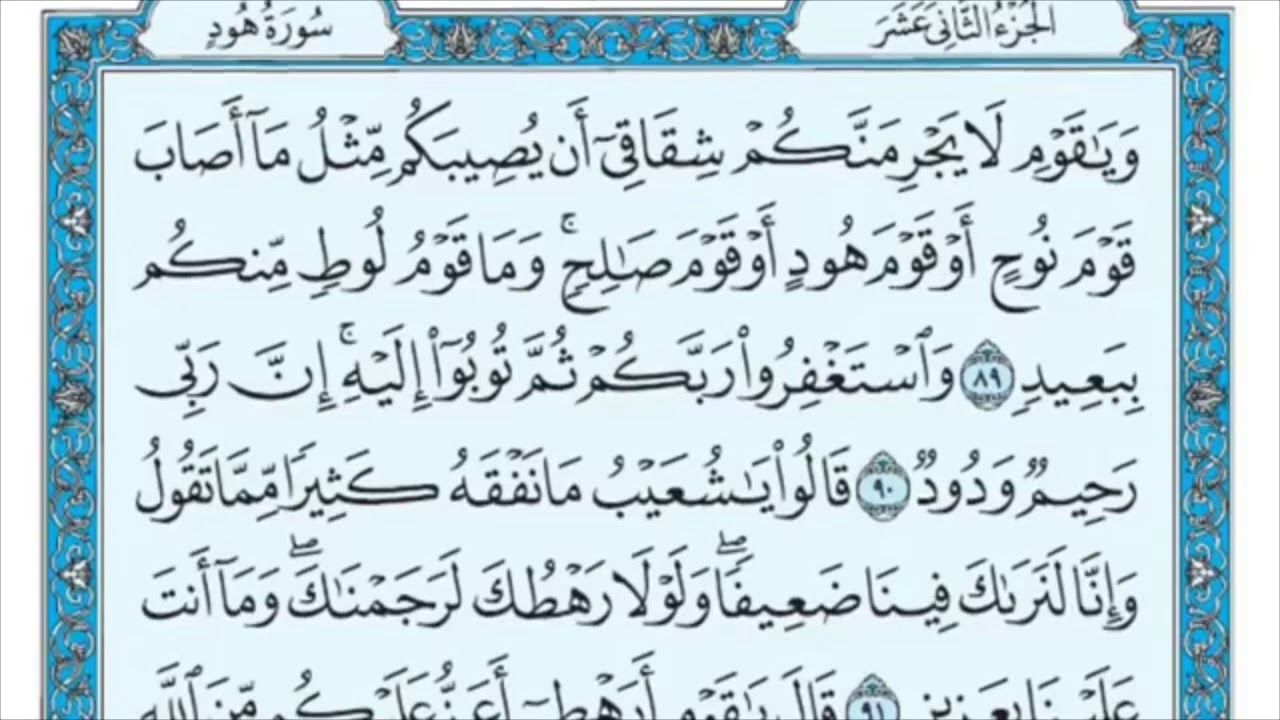 الجزء الثاني عشر
سورة هود
وَيَٰقَوْمِ لَا يَجْرِمَنَّكُمْ شِقَاقِىٓ أَن يُصِيبَكُم مِّثْلُ مَآ أَصَابَ
قَوْمَ نُوحٍ أَوْ قَوْمَ هُودٍ أَوْ قَوْمَ صَٰلِحٍۚ وَمَا قَوْمُ لُوطٍ مِّنكُم
بِبَعِيدٍ ٨٩ وَٱسْتَغْفِرُوا۟ رَبَّكُمْ ثُمَّ تُوبُوٓا۟ إِلَيْهِۚ إِنَّ رَبِّى
رَحِيمٌ وَدُودٌ ٩٠ قَالُوا۟ يَٰشُعَيْبُ مَا نَفْقَهُ كَثِيرًا مِّمَّا تَقُولُ
وَإِنَّا لَنَرَىٰكَ فِينَا ضَعِيفًاۖ وَلَوْلَا رَهْطُكَ لَرَجَمْنَٰكَۖ وَمَآ أَنتَ
عَلَيْنَا بِعَزِيزٍ ٩١ قَالَ يَٰقَوْمِ أَرَهْطِىٓ أَعَزُّ عَلَيْكُم مِّنَ ٱللَّهِ